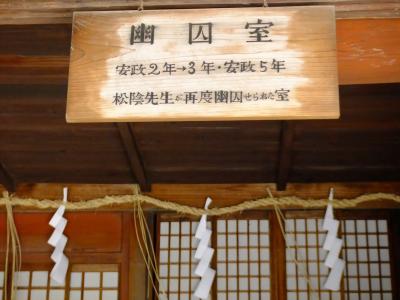 幽囚室
安政2年→3年・安政5年
松陰先生が再度幽囚せられた室